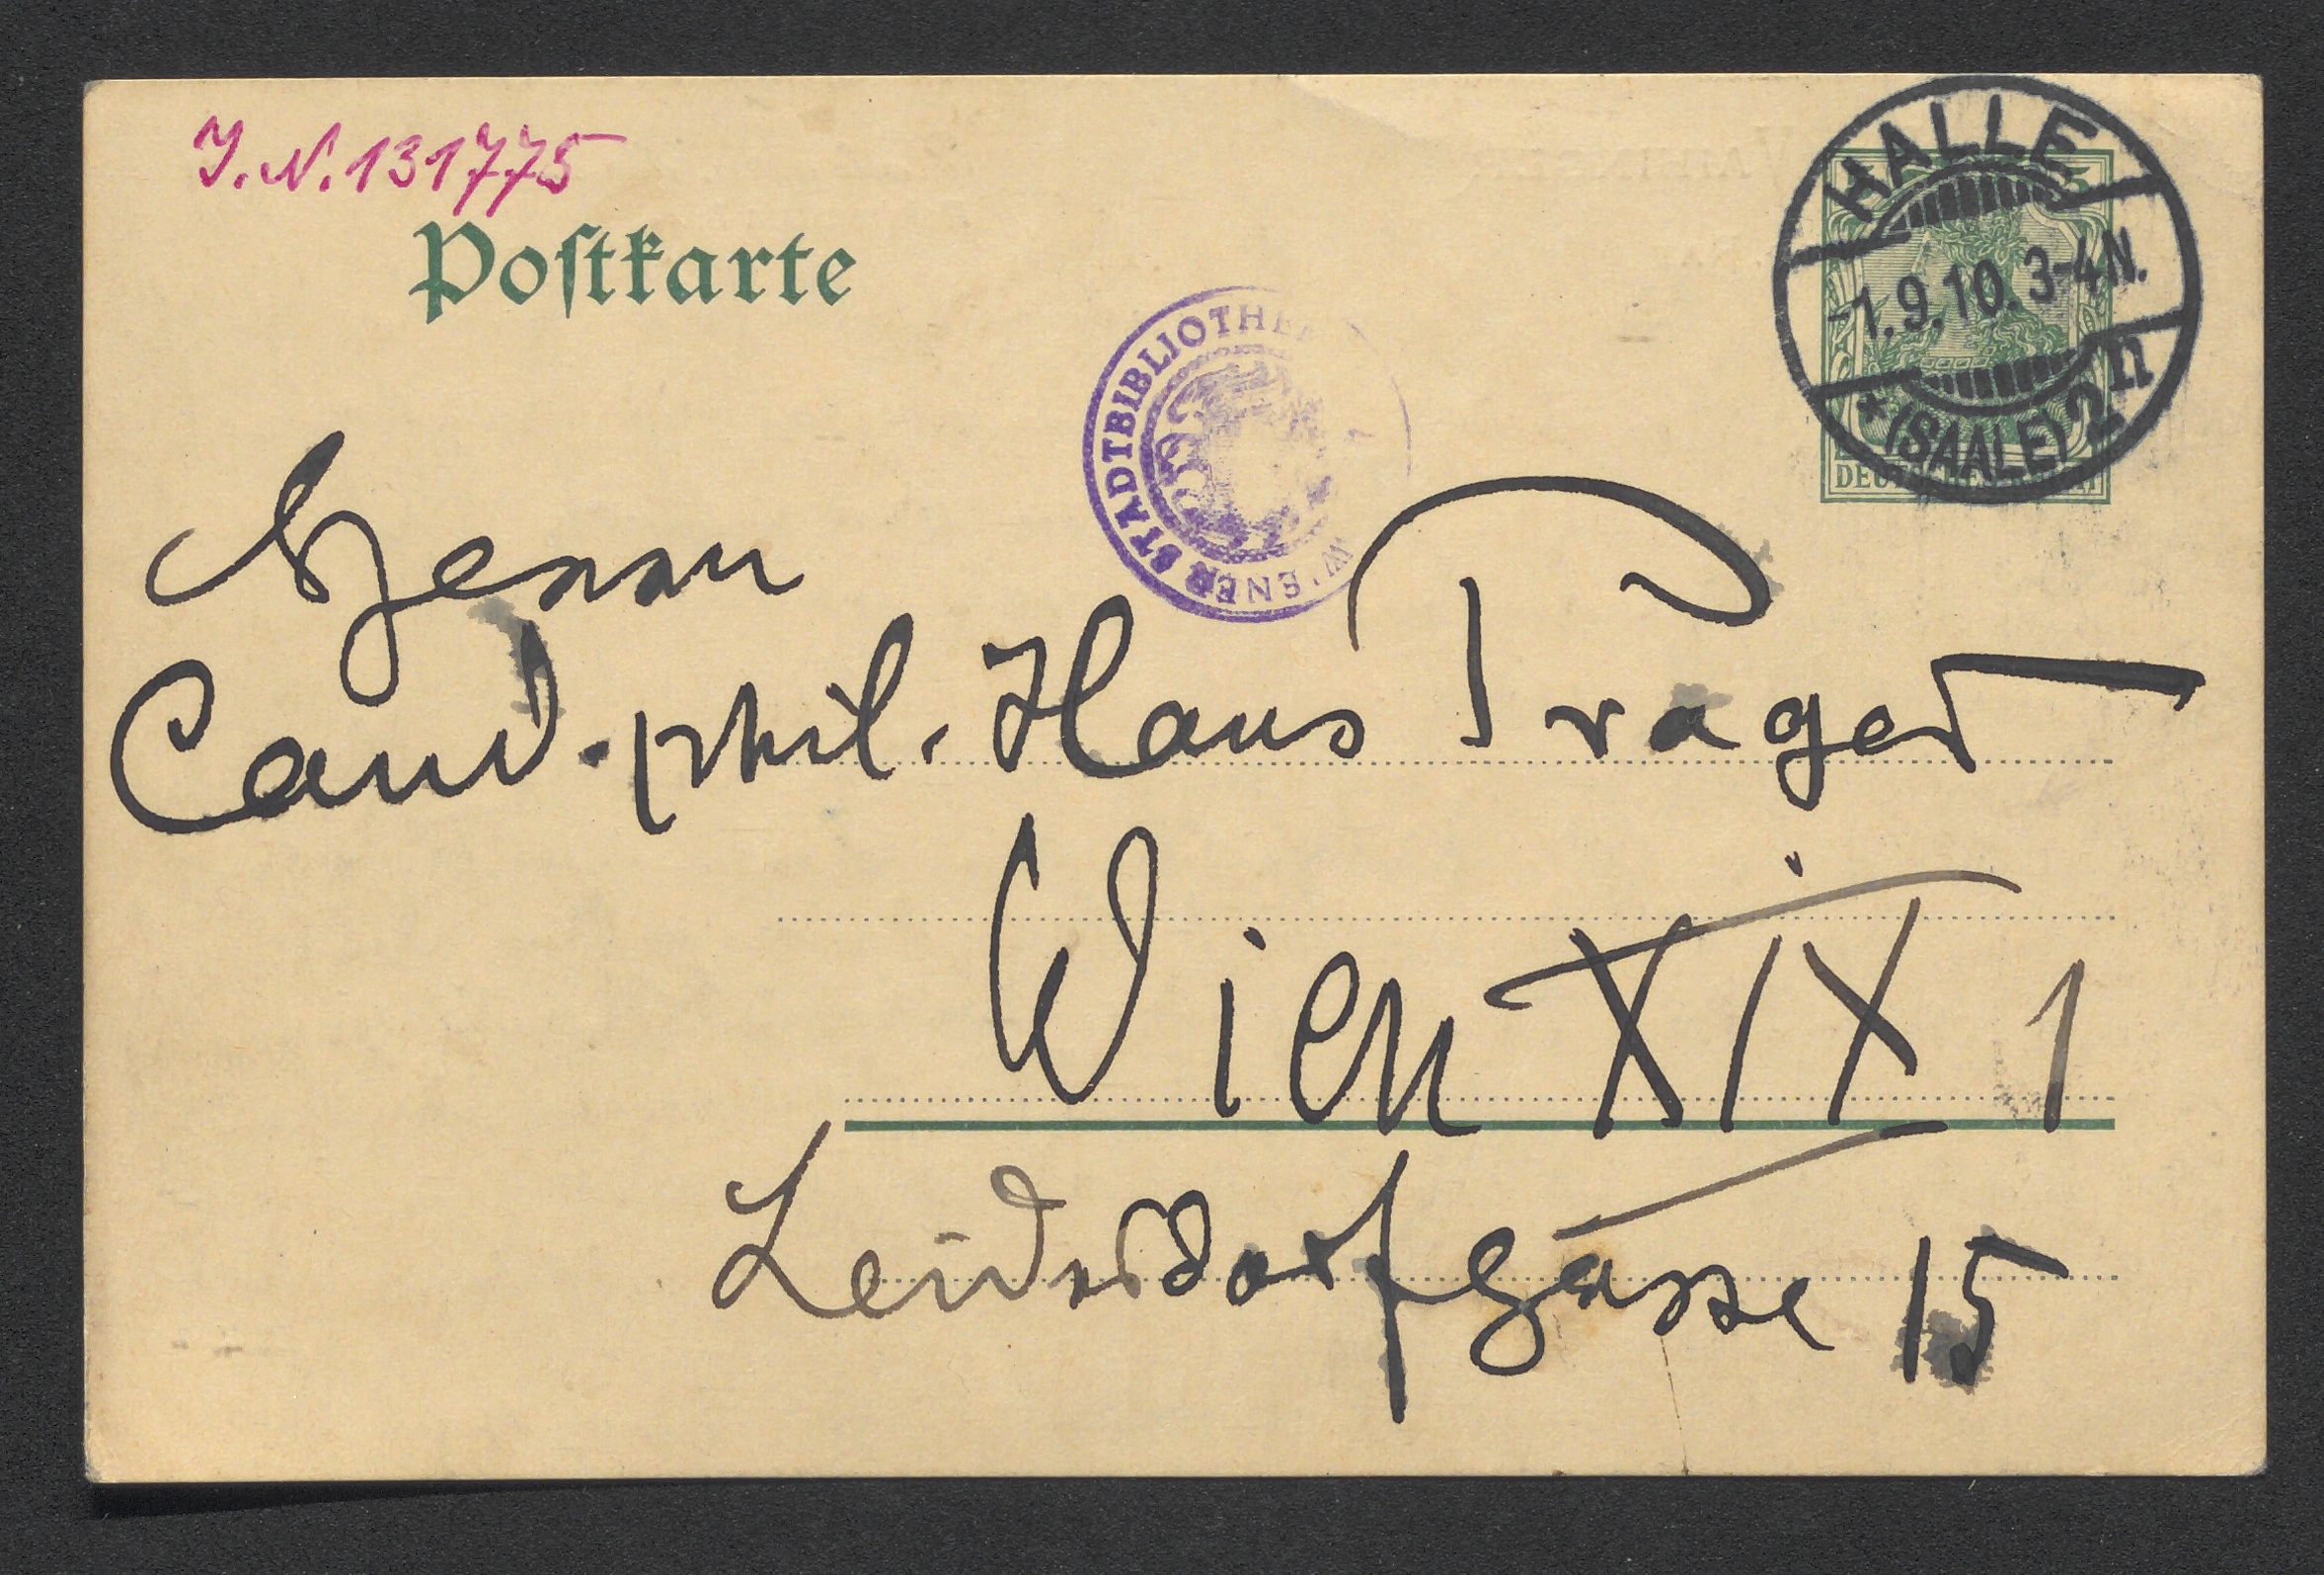 J.N.131775
Postkarte
HALLE
-1.9.10.3-4N.
*(SAALE) 2 n
DEUTSCHES REICH
WIENER STADTBIBLIOTHEK
Herrn
Cand. phil. Hans Prager
Wien XIX 1
Leidesdorfgasse 15